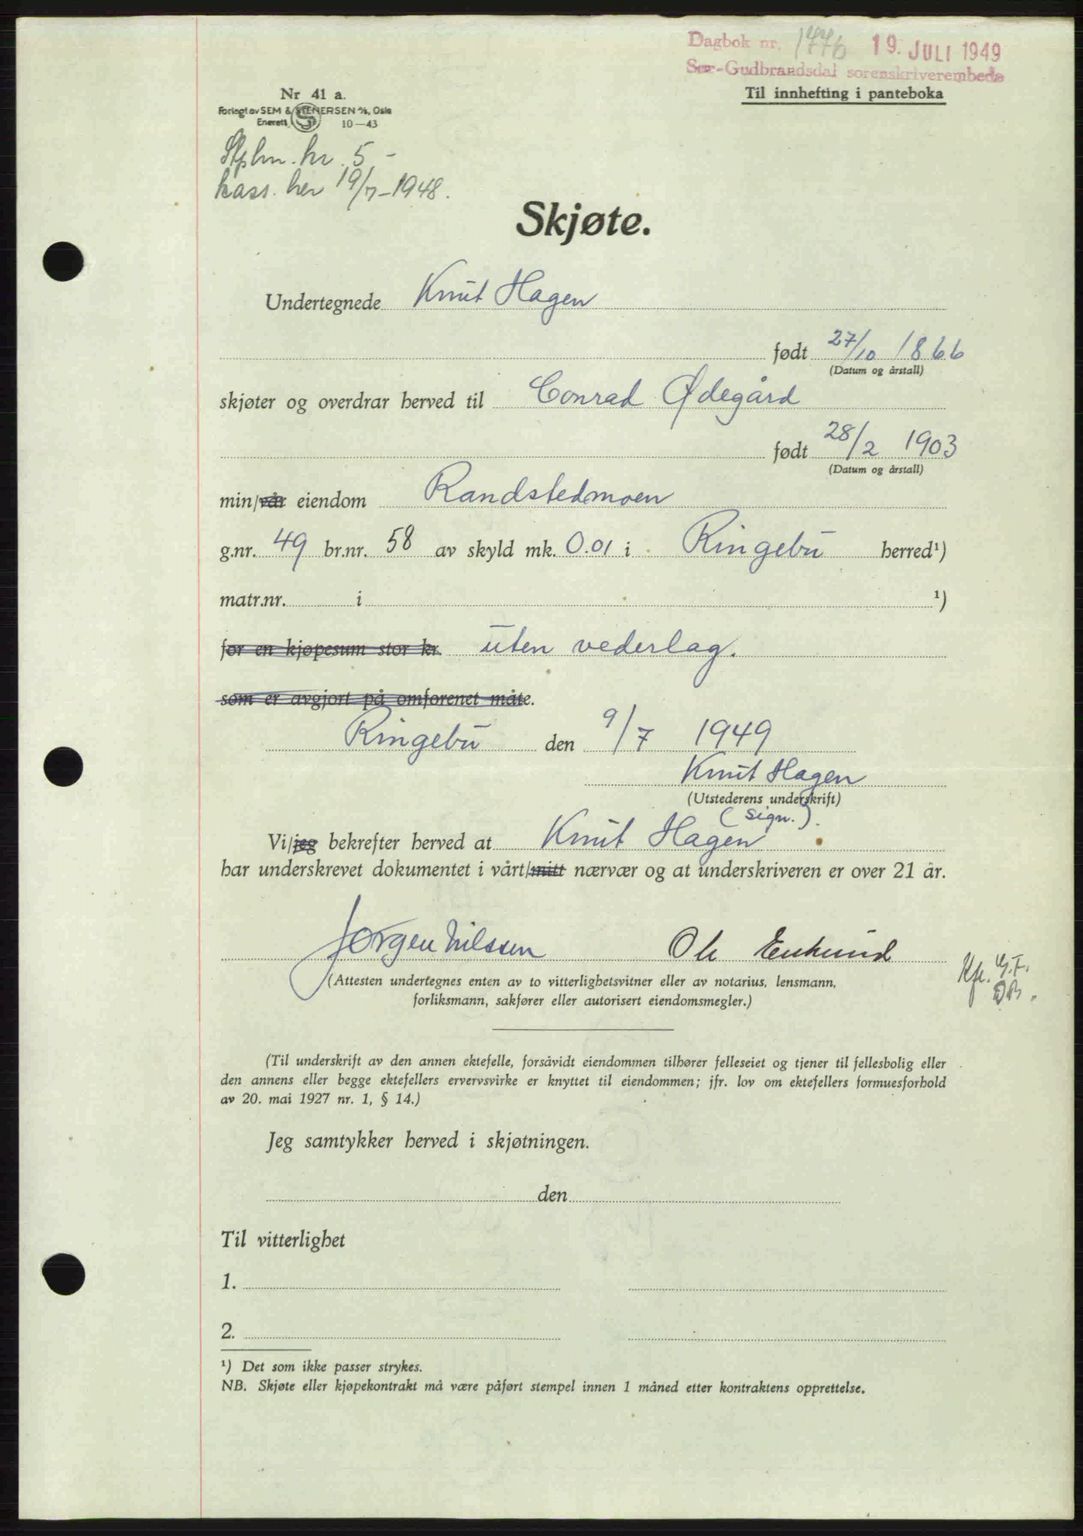 Dagbok nr. 1776 19. JULI 1949
Sør-Gudbrandsdal sorenskriverembede
Til innhefting i panteboka
Nr 41 a.
Forlagt av SEM & STENERSEN A/S, Oslo
Enerett S 10-43
Stplm. kr. 5.-
kass. her 19/7-1948.
Skjøte.
Undertegnede Knut Hagen
født 27/10 1866
(Datum og årstall)
skjøter og overdrar herved til Conrad Ødegård
født 28/2 1903
(Datum og årstall)
min/vår eiendom Randstedmoen
g.nr. 49 br.nr. 58 av skyld mk. 0.01 i Ringebu herred¹)
matr.nr. i ¹)
for en kjøpesum stor kr. uten vederlag.
som er avgjort på omforenet måte.
Ringebu den 9/7 1949
Knut Hagen
(Utstederens underskrift)
(sign.).
Vi/jeg bekrefter herved at Knut Hagen
har underskrevet dokumentet i vårt/mitt nærvær og at underskriveren er over 21 år.
Jørgen Nilssen Ole
(Attesten undertegnes enten av to vitterlighetsvitner eller av notarius, lensmann,
forliksmann, sakfører eller autorisert eiendomsmegler.)
(Til underskrift av den annen ektefelle, forsåvidt eiendommen tilhører felleseiet og tjener til fellesbolig eller
den annens eller begge ektefellers ervervsvirke er knyttet til eiendommen; jfr. lov om ektefellers formuesforhold
av 20. mai 1927 nr. 1, § 14.)
Jeg samtykker herved i skjøtningen.
den
Til vitterlighet
1.
2.
¹) Det som ikke passer strykes.
NB. Skjøte eller kjøpekontrakt må være påført stempel innen 1 måned etter kontraktens opprettelse.